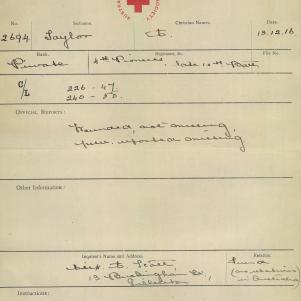 No. Surname. Christian Names. Date.
2694 Taylor 13.12.16
Rank. Regiment, &c. File No.
Private 4th Pioneers late 10th Batt
C/L 226-47
240-50
OFFICIAL REPORTS:
Wounded, not missing,
prev. reported missing
Other Information:
Inquirer's Name and Address. Relation.
Friend
(no relations
in Australia)
Instructions: